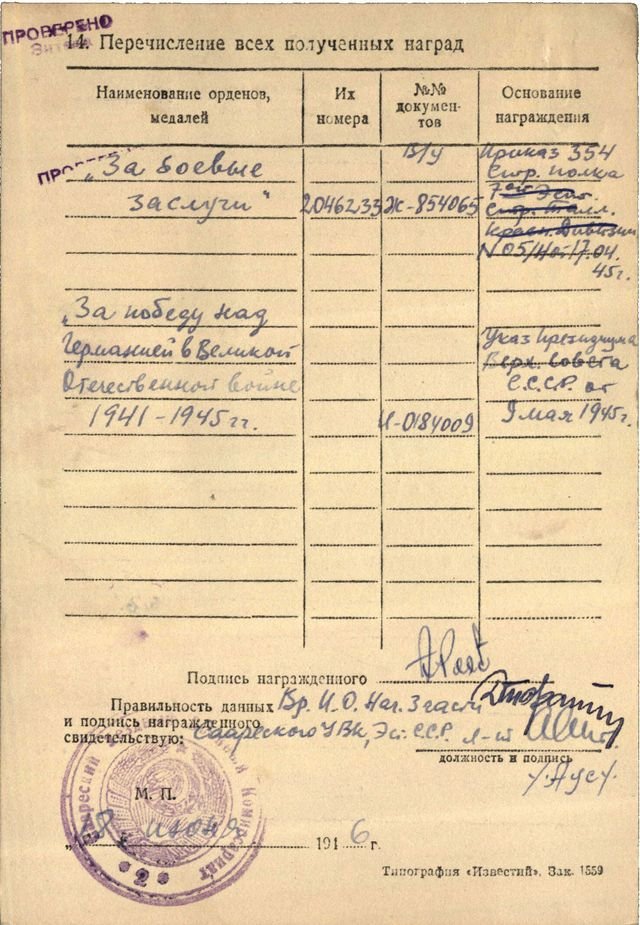 ПРОВЕРЕНО
14. Перечисление всех полученных наград
Наименование орденов,
медалей
Их
номера
№№
докумен-
тов
Основание
награждения
„За боевые
заслуги“
2046233
В/у
Ж-854065
Приказ 354
Стр. полка
7ой Эст.
Стр. Талл.
Красн. Дивизии
N 05/Н от 17.04.
45г.
„За победу над
Германией в Великой
Отечественной войне
1941-1945гг.
И-0184009
Указ Президиума
Верх. Совета
С.С.С.Р. от
9 мая 1945г.
Подпись награжденного
Правильность данных
и подпись награжденного
свидетельствую:
Вр. И. О. Нач. 3 части
Саареского УВК, Эст. С.С.Р. л-нт
должность и подпись
М. П.
„18 июня 1946 г.
2
Типография «Известий». Зак. 1559